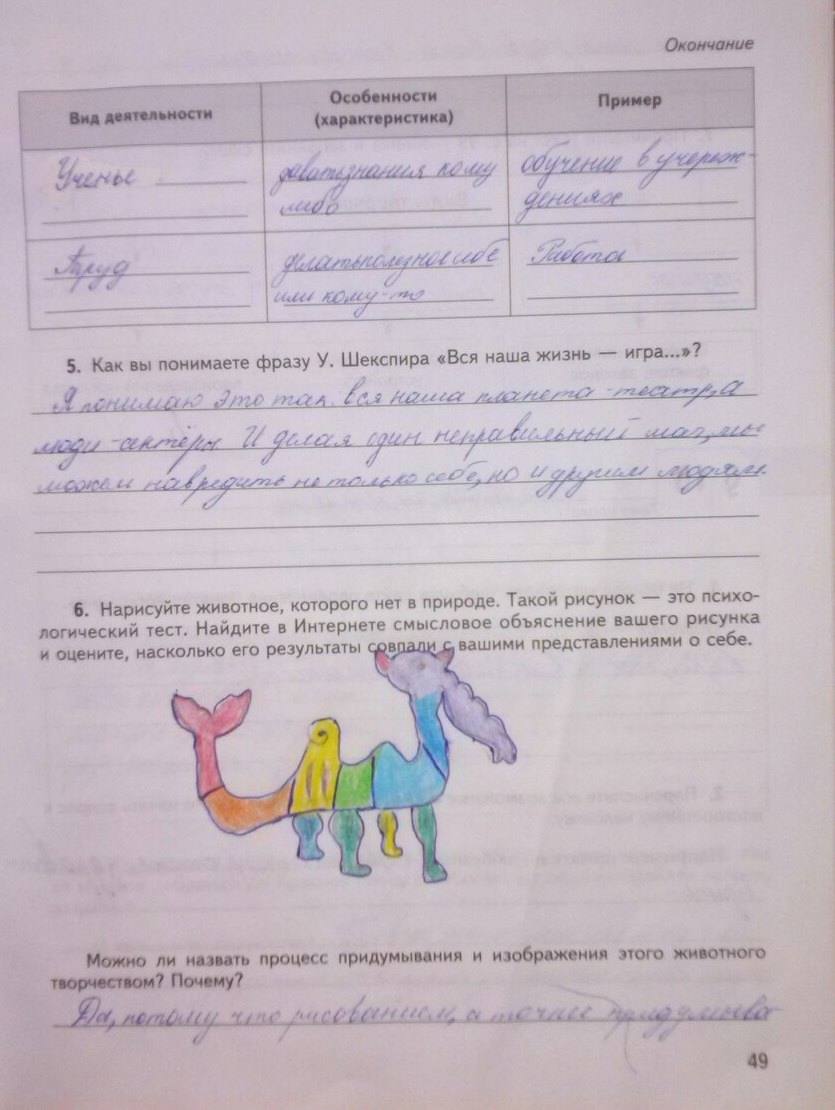 Окончание
Вид деятельности
Особенности
(характеристика)
Пример
Ученье
давать знания кому
либо
обучение в учереж-
дениях
Труд
делать полезное себе
или кому-то
Работа
5. Как вы понимаете фразу У. Шекспира «Вся наша жизнь — игра...»?
Я понимаю это так вся наша планета - театр, а
люди - актёры И делая один неправильный шаг, мы
можем навредить не только себе, но и другим людям.
6. Нарисуйте животное, которого нет в природе. Такой рисунок — это психо-
логический тест. Найдите в Интернете смысловое объяснение вашего рисунка
и оцените, насколько его результаты совпали с вашими представлениями о себе.
Можно ли назвать процесс придумывания и изображения этого животного
творчеством? Почему?
Да, потому что рисованием, а точнее придумыва
49